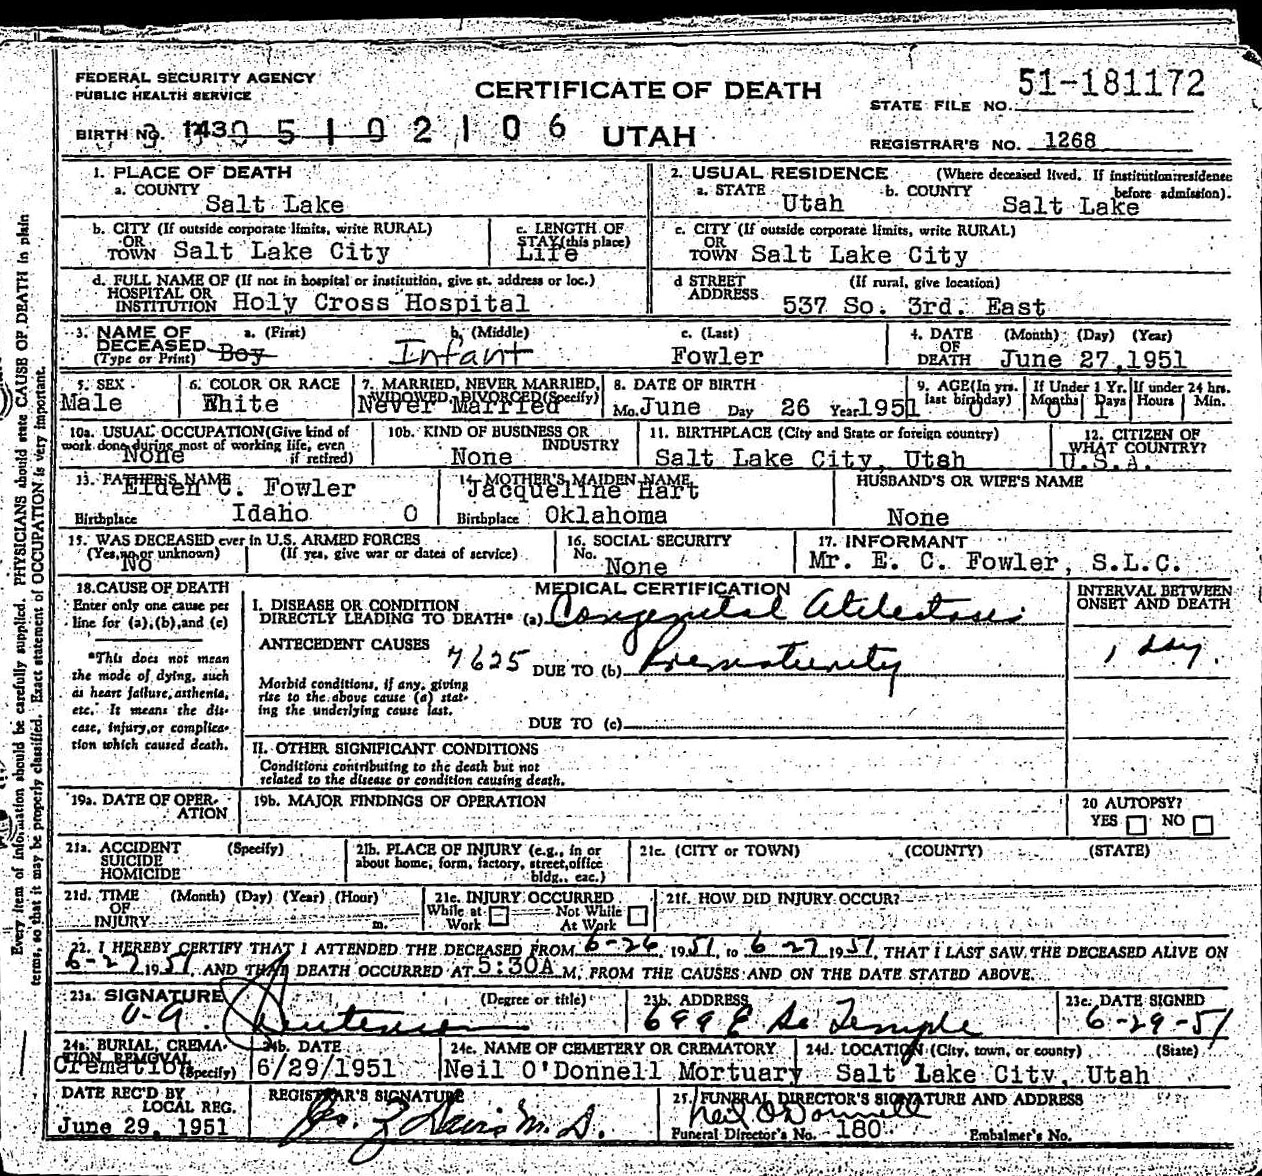 FEDERAL SECURITY AGENCY
PUBLIC HEALTH SERVICE
CERTIFICATE OF DEATH
STATE FILE NO. 51-181172
BIRTH NO. 143 0 5 1 0 2 1 0 6
UTAH
REGISTRAR'S NO. 1268
1. PLACE OF DEATH
a. COUNTY
Salt Lake
2. USUAL RESIDENCE (Where deceased lived. If institution: residence before admission).
a. STATE Utah b. COUNTY Salt Lake
b. CITY (If outside corporate limits, write RURAL)
OR
TOWN Salt Lake City
c. LENGTH OF
STAY (this place)
Life
c. CITY (If outside corporate limits, write RURAL)
OR
TOWN Salt Lake City
d. FULL NAME OF (If not in hospital or institution, give st. address or loc.)
HOSPITAL OR
INSTITUTION Holy Cross Hospital
d STREET (If rural, give location)
ADDRESS 537 So. 3rd. East
3. NAME OF a. (First) b. (Middle) c. (Last)
DECEASED
(Type or Print) Boy Infant Fowler
4. DATE (Month) (Day) (Year)
OF
DEATH June 27, 1951
5. SEX
Male
6. COLOR OR RACE
White
7. MARRIED, NEVER MARRIED,
WIDOWED, DIVORCED (Specify)
Never Married
8. DATE OF BIRTH
Mo. June Day 26 Year 1951
9. AGE (In yrs. last birthday) 0
If Under 1 Yr. Months 0 Days 1
If under 24 hrs. Hours Min.
10a. USUAL OCCUPATION (Give kind of
work done during most of working life, even
if retired)
None
10b. KIND OF BUSINESS OR
INDUSTRY
None
11. BIRTHPLACE (City and State or foreign country)
Salt Lake City, Utah
12. CITIZEN OF
WHAT COUNTRY?
U.S.A.
13. FATHER'S NAME
Elden C. Fowler
Birthplace Idaho 0
14. MOTHER'S MAIDEN NAME
Jacqueline Hart
Birthplace Oklahoma
HUSBAND'S OR WIFE'S NAME
None
15. WAS DECEASED ever in U.S. ARMED FORCES
(Yes, no or unknown) (If yes, give war or dates of service)
No
16. SOCIAL SECURITY
No. None
17. INFORMANT
Mr. E. C. Fowler, S.L.C.
18. CAUSE OF DEATH
Enter only one cause per
line for (a), (b), and (c)
*This does not mean
the mode of dying, such
as heart failure, asthenia,
etc. It means the dis-
ease, injury, or complica-
tion which caused death.
MEDICAL CERTIFICATION
INTERVAL BETWEEN
ONSET AND DEATH
I. DISEASE OR CONDITION
DIRECTLY LEADING TO DEATH* (a) Congenital Atelectasis
ANTECEDENT CAUSES
7625 DUE TO (b) Prematurity
1 day.
Morbid conditions, if any, giving
rise to the above cause (a) stat-
ing the underlying cause last.
DUE TO (c)
II. OTHER SIGNIFICANT CONDITIONS
Conditions contributing to the death but not
related to the disease or condition causing death.
19a. DATE OF OPER-
ATION
19b. MAJOR FINDINGS OF OPERATION
20 AUTOPSY?
YES NO
21a. ACCIDENT (Specify)
SUICIDE
HOMICIDE
21b. PLACE OF INJURY (e.g., in or
about home, form, factory, street, office
bldg., eac.)
21c. (CITY or TOWN) (COUNTY) (STATE)
21d. TIME (Month) (Day) (Year) (Hour)
OF
INJURY m.
21e. INJURY OCCURRED
While at Work Not While At Work
21f. HOW DID INJURY OCCUR?
22. I HEREBY CERTIFY THAT I ATTENDED THE DECEASED FROM 6-26, 1951, to 6-27 1951, THAT I LAST SAW THE DECEASED ALIVE ON
6-27 1951, AND THAT DEATH OCCURRED AT 5:30A M., FROM THE CAUSES AND ON THE DATE STATED ABOVE.
23a. SIGNATURE (Degree or title)
23b. ADDRESS
699 E So Temple
23c. DATE SIGNED
6-29-51
24a. BURIAL, CREMA-
TION REMOVAL
Cremation (Specify)
24b. DATE
6/29/1951
24c. NAME OF CEMETERY OR CREMATORY
Neil O'Donnell Mortuary
24d. LOCATION (City, town, or county) (State)
Salt Lake City, Utah
DATE REC'D BY
LOCAL REG.
June 29, 1951
REGISTRAR'S SIGNATURE
Davis M.D.
25. FUNERAL DIRECTOR'S SIGNATURE AND ADDRESS
Neil O'Donnell
Funeral Director's No. 180 Embalmer's No.
Every item of information should be carefully supplied. PHYSICIANS should state CAUSE OF DEATH in plain
terms, so that it may be properly classified. Exact statement of OCCUPATION is very important.